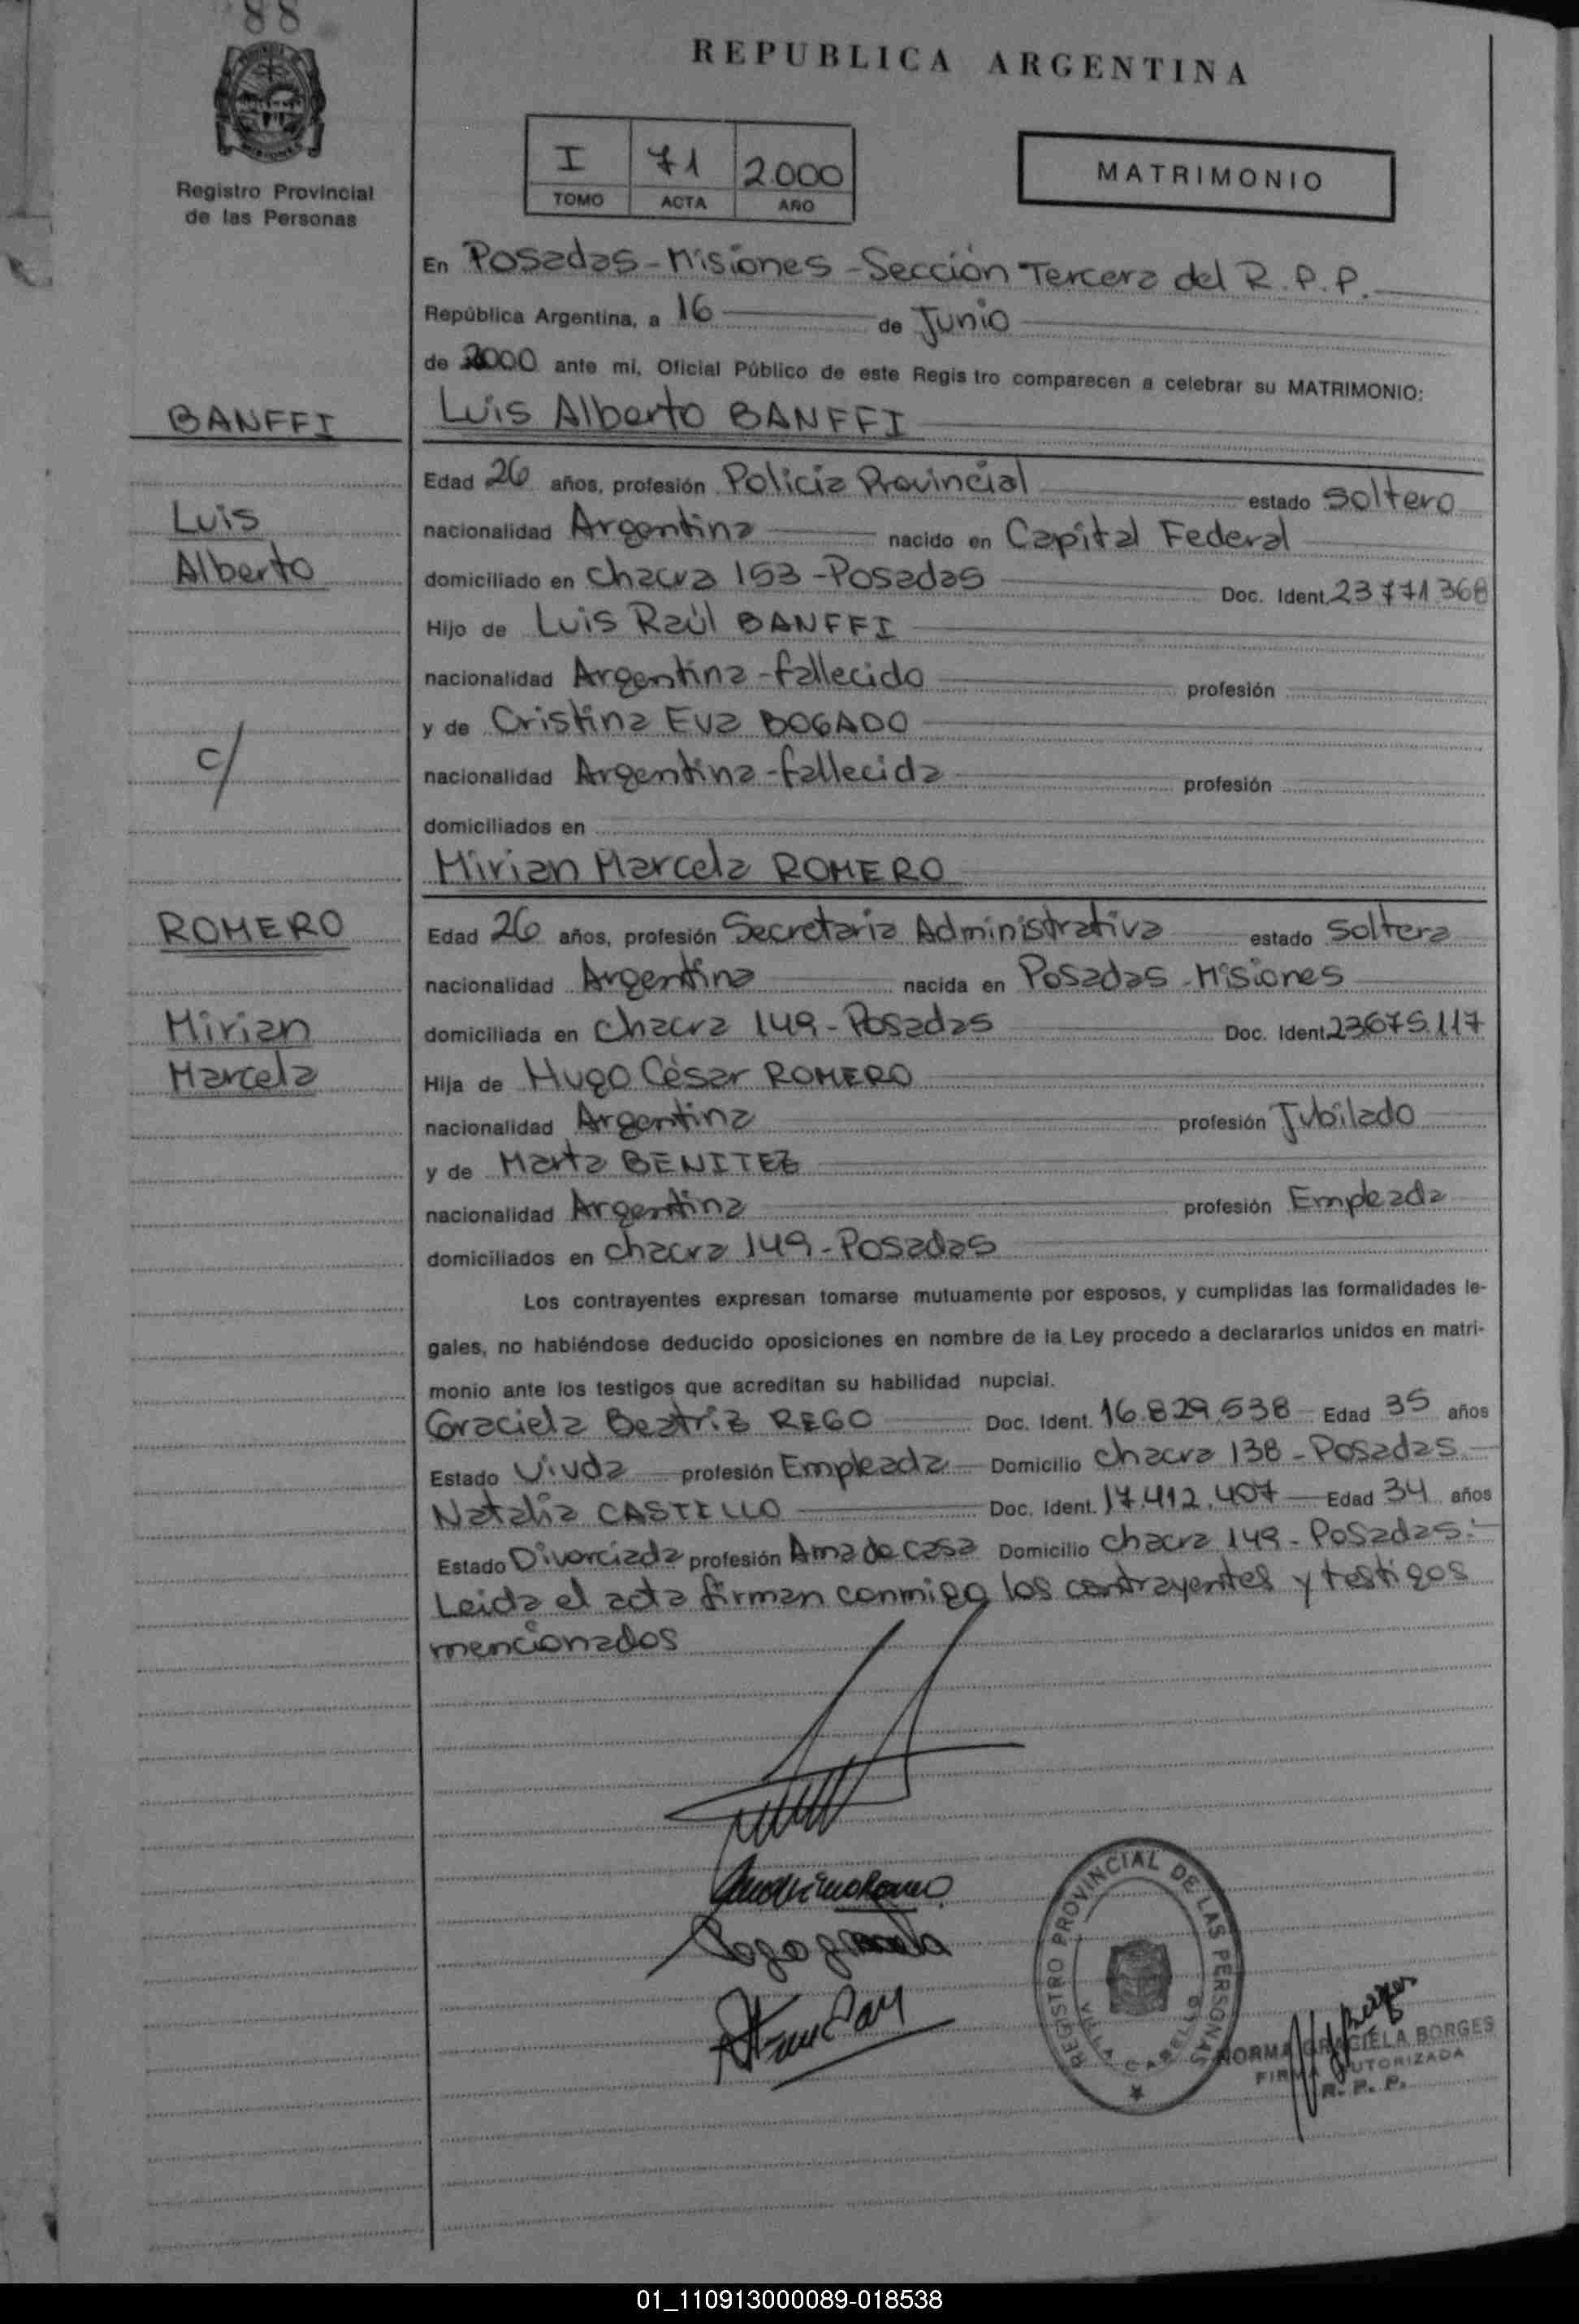 88
REPUBLICA ARGENTINA
Registro Provincial
de las Personas
I 71 2.000
TOMO ACTA AÑO
MATRIMONIO
En Posadas - Misiones - Sección Tercera del R.P.P.
República Argentina, a 16 de Junio
de 2000 ante mi, Oficial Público de este Regis tro comparecen a celebrar su MATRIMONIO:
BANFFI
Luis Alberto BANFFI
Edad 26 años, profesión Policía Provincial estado Soltero
Luis
nacionalidad Argentina nacido en Capital Federal
Alberto
domiciliado en chacra 153 - Posadas Doc. Ident. 23.771.368
Hijo de Luis Raúl BANFFI
nacionalidad Argentina - fallecido profesión
y de Cristina Eva BOGADO
c/
nacionalidad Argentina - fallecida profesión
domiciliados en
Mirian Marcela ROMERO
ROMERO
Edad 26 años, profesión Secretaria Administrativa estado Soltera
nacionalidad Argentina nacida en Posadas - Misiones
Mirian
domiciliada en chacra 149 - Posadas Doc. Ident. 23675.117
Marcela
Hija de Hugo César ROMERO
nacionalidad Argentina profesión Jubilado
y de Marta BENITEZ
nacionalidad Argentina profesión Empleada
domiciliados en chacra 149 - Posadas
Los contrayentes expresan tomarse mutuamente por esposos, y cumplidas las formalidades le-
gales, no habiéndose deducido oposiciones en nombre de la Ley procedo a declararlos unidos en matri-
monio ante los testigos que acreditan su habilidad nupcial.
Graciela Beatriz REGO Doc. Ident. 16.829.538 Edad 35 años
Estado Viuda profesión Empleada Domicilio chacra 138 - Posadas.
Natalia CASTILLO Doc. Ident. 17.412.407 Edad 34 años
Estado Divorciada profesión Ama de casa Domicilio chacra 149 - Posadas.
Leida el acta firman conmigo los contrayentes y testigos
mencionados
REGISTRO PROVINCIAL DE LAS PERSONAS
VILLA CABELLO
NORMA GRACIELA BORGES
FIRMA AUTORIZADA
R. P. P.
01_110913000089-018538